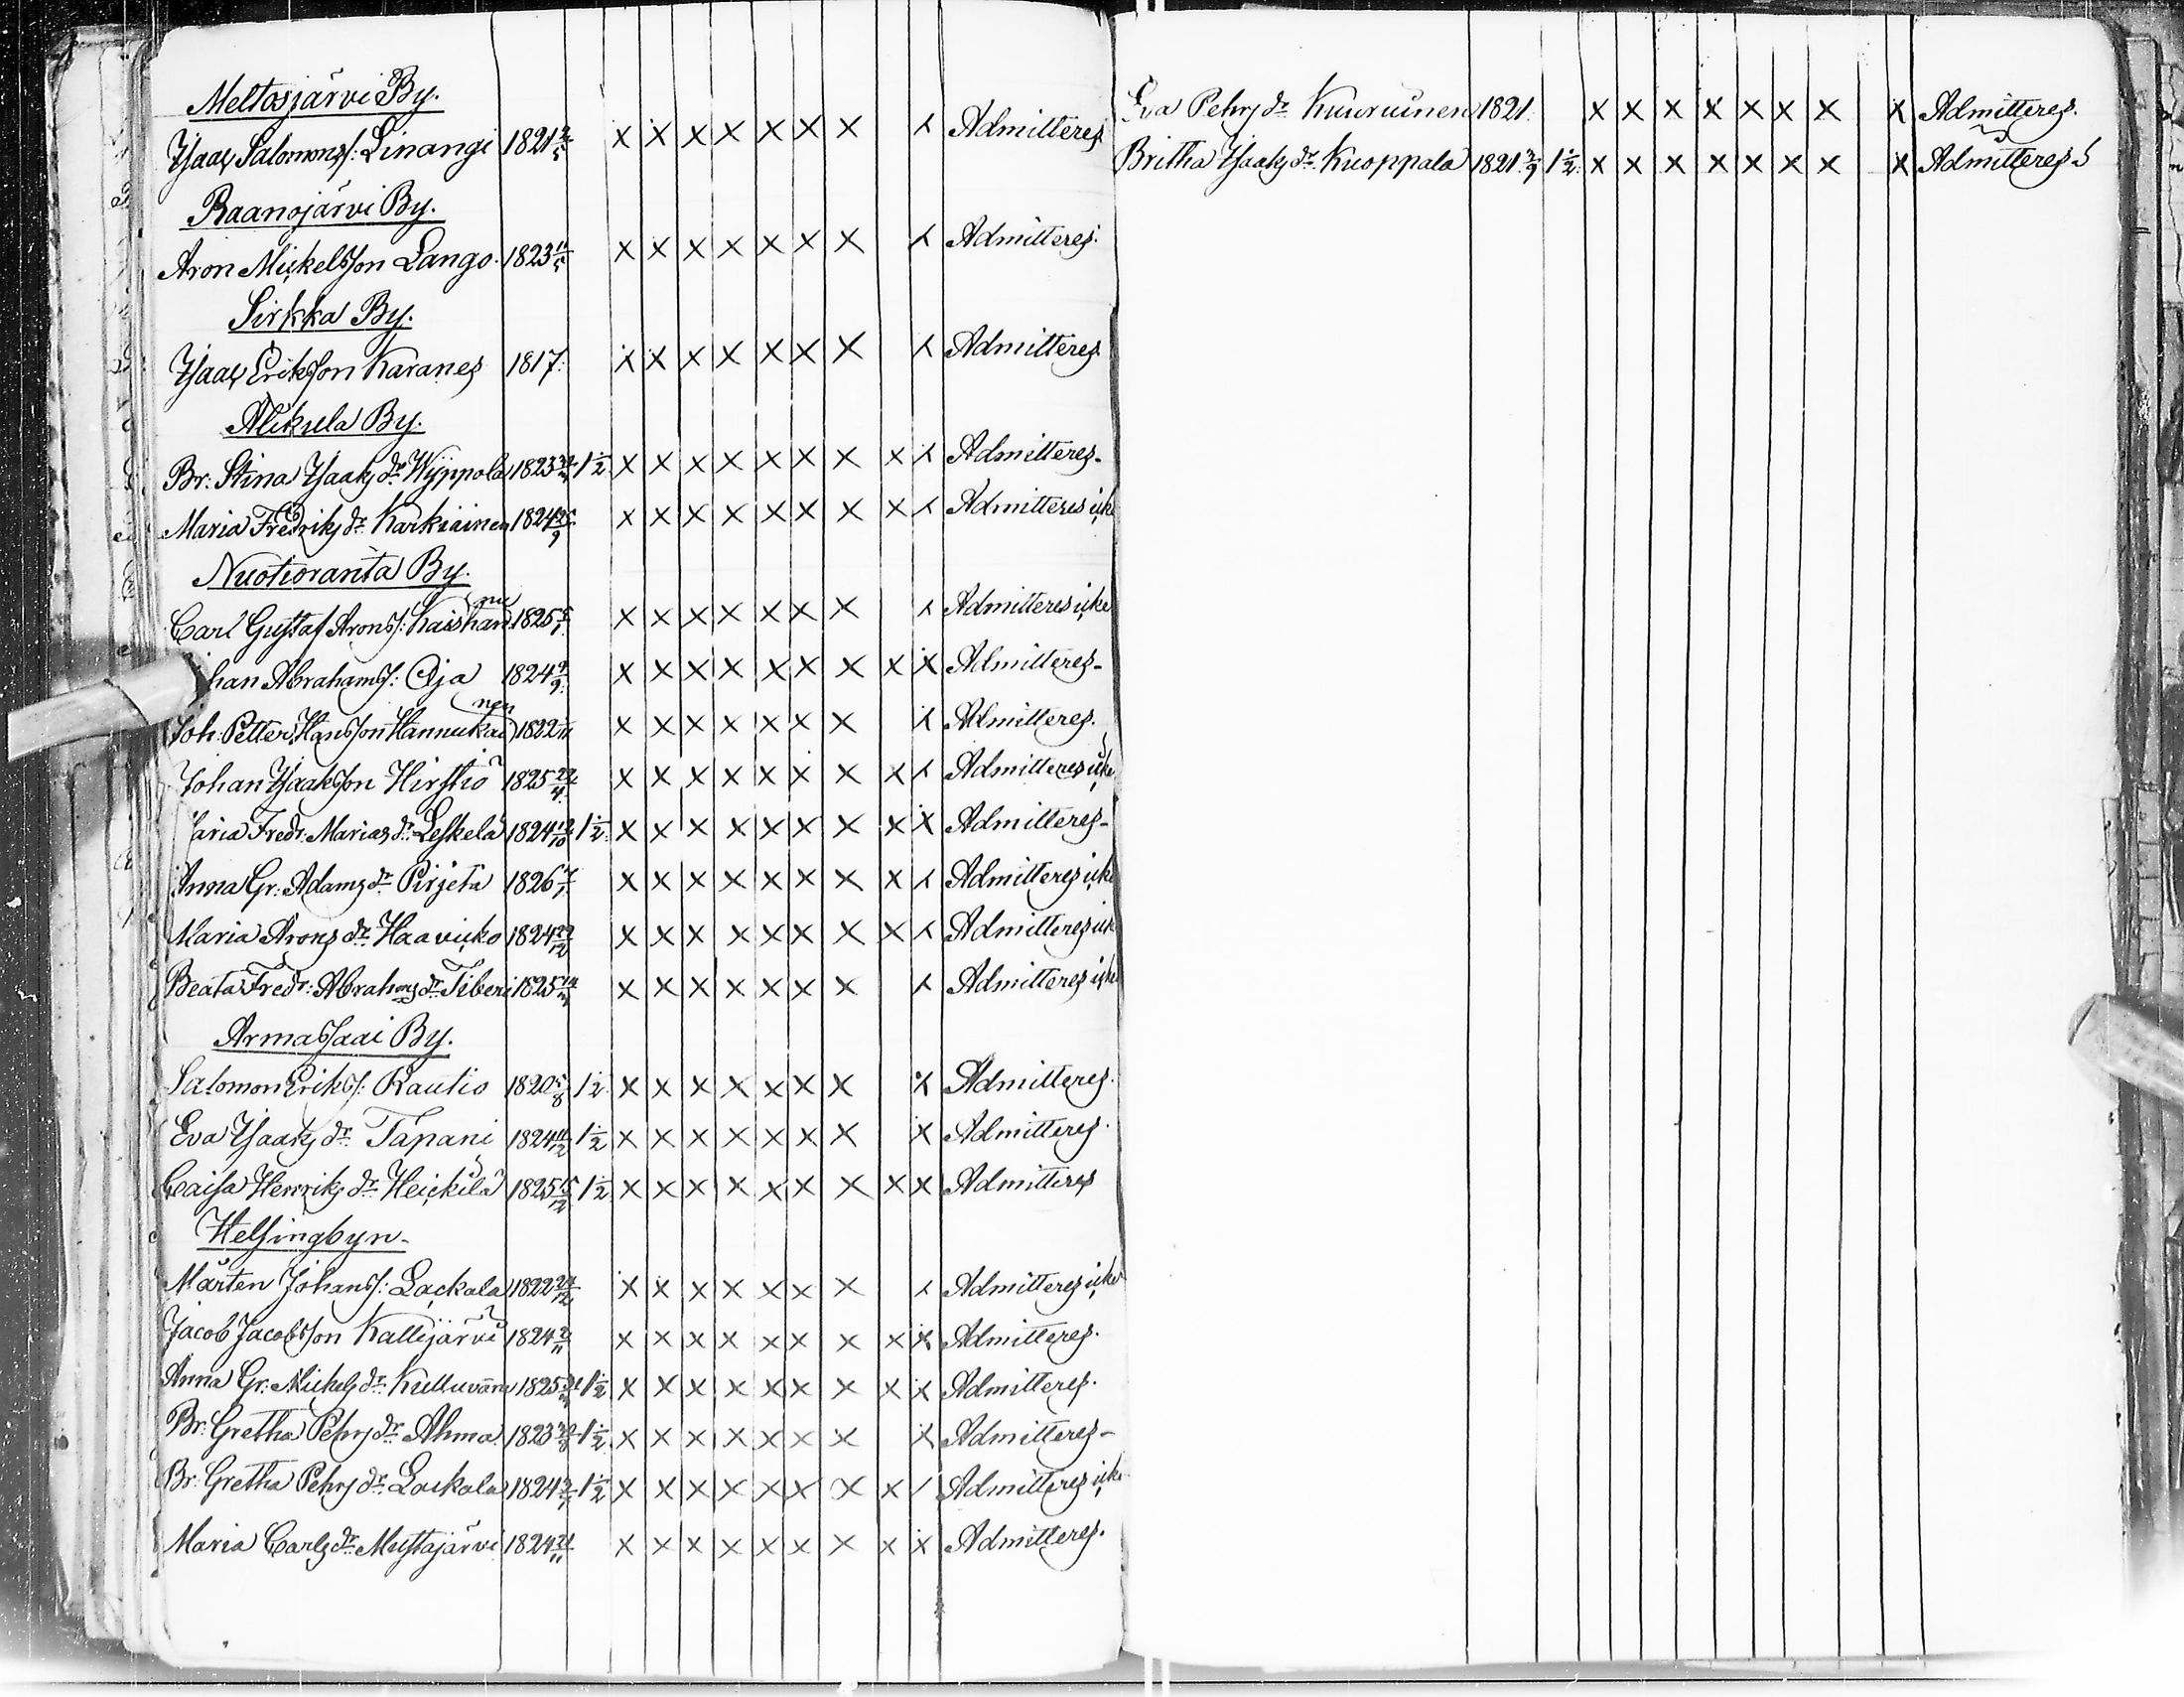 Meltosjärvi By.
Isaac Salomons: Linangi 1821 2/5 x x x x x x x x Admitteres
Raanojärvi By.
Aron Mickelsson Lango 1823 11/5 x x x x x x x x Admitteres.
Sirkka By.
Isaac Eriksson Karanes 1817. x x x x x x x x Admitteres.
Alikula By.
Br: Stina Isaaks dr Wyppola 1823 1 1/2 x x x x x x x x x Admitteres.
Maria Fredriks dr Karkiainen 1824 25/9 x x x x x x x x x Admitteres icke
Nuotioranta By.
nu
Carl Gustaf Arons: Kaishan 1825 x x x x x x x x Admitteres icke
Abrahams: Oja 1824 9/9 x x x x x x x x x Admitteres.
nen
Joh: Petter Hansson Hannukai 1822 x x x x x x x x Admitteres.
Johan Isaaksson Hirstiö 1825 22/4 x x x x x x x x x Admitteres icke
Maria Fredr: Marias dr Leskelä 1824 12/10 1 1/2 x x x x x x x x x Admitteres.
Anna Gr: Adams dr Pirjetä 1826 7/1 x x x x x x x x x Admitteres icke
Maria Arons dr Haavicko 1824 29/12 x x x x x x x x x Admitteres icke
Beata Fredr: Abrahams dr Tiberi 1825 x x x x x x x x Admitteres icke
Armassaai By.
Salomon Eriks: Rautio 1820 5/8 1 1/2 x x x x x x x x Admitteres.
Eva Isaaks dr Tapani 1824 11/12 1 1/2 x x x x x x x x Admitteres.
Caisa Henriks dr Heickilä 1825 5/12 1 1/2 x x x x x x x x x Admitteres
Helsingbyn.
Mårten Johans: Lackala 1822 24/12 x x x x x x x x Admitteres icke
Jacob Jacobsson Kallijärvi 1824 2/11 x x x x x x x x x Admitteres.
Anna Gr: Mickels dr Kulluvaara 1825 1 1/2 x x x x x x x x x Admitteres.
Br: Gretha Pehrs dr Ahma 1823 30/8 1 1/2 x x x x x x x x Admitteres.
Br: Gretha Pehrs dr Lackala 1824 1 1/2 x x x x x x x x / Admitteres icke
Maria Carls dr Mustajärvi 1824 21/11 x x x x x x x x x Admitteres.
Eva Pehrs dr Kuuruinen 1821. x x x x x x x x Admitteres.
Britha Isaaks dr Kuoppala 1821 3/9 1 1/2 x x x x x x x x Admitteres